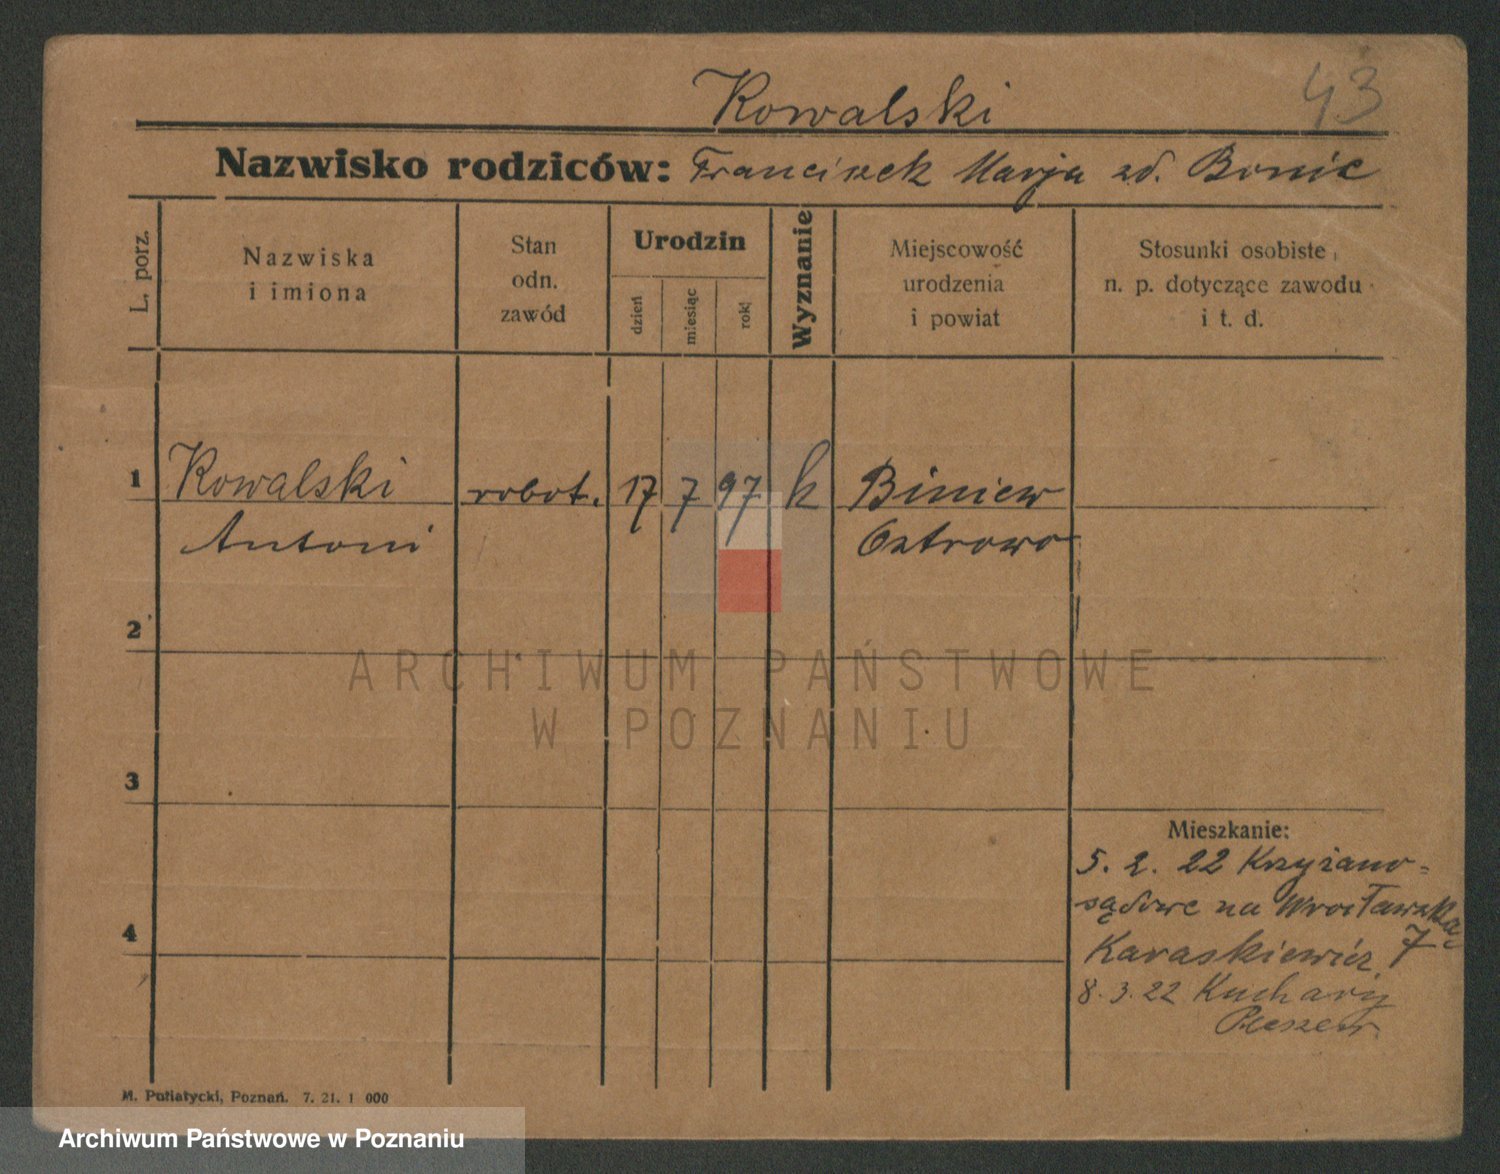 Kowalski
43
Nazwisko rodziców: Franciszek Marja zd.
L. porz.
Nazwiska i imiona
Stan odn. zawód
Urodzin
dzień
miesiąc
rok
Wyznanie
Miejscowość urodzenia i powiat
Stosunki osobiste, n. p. dotyczące zawodu i t. d.
1 Kowalski robot. 17 7 97 k Biniew
Antoni Ostrowo
2
ARCHIWUM PAŃSTWOWE
W POZNANIU
3
Mieszkanie:
5. 2. 22 Krzyżano-
na Wrocławska
4
Karaskiewicz 7
8. 3. 22 Kuchary
Pleszew
M. Putiatycki, Poznań. 7. 21. 1 000
Archiwum Państwowe w Poznaniu